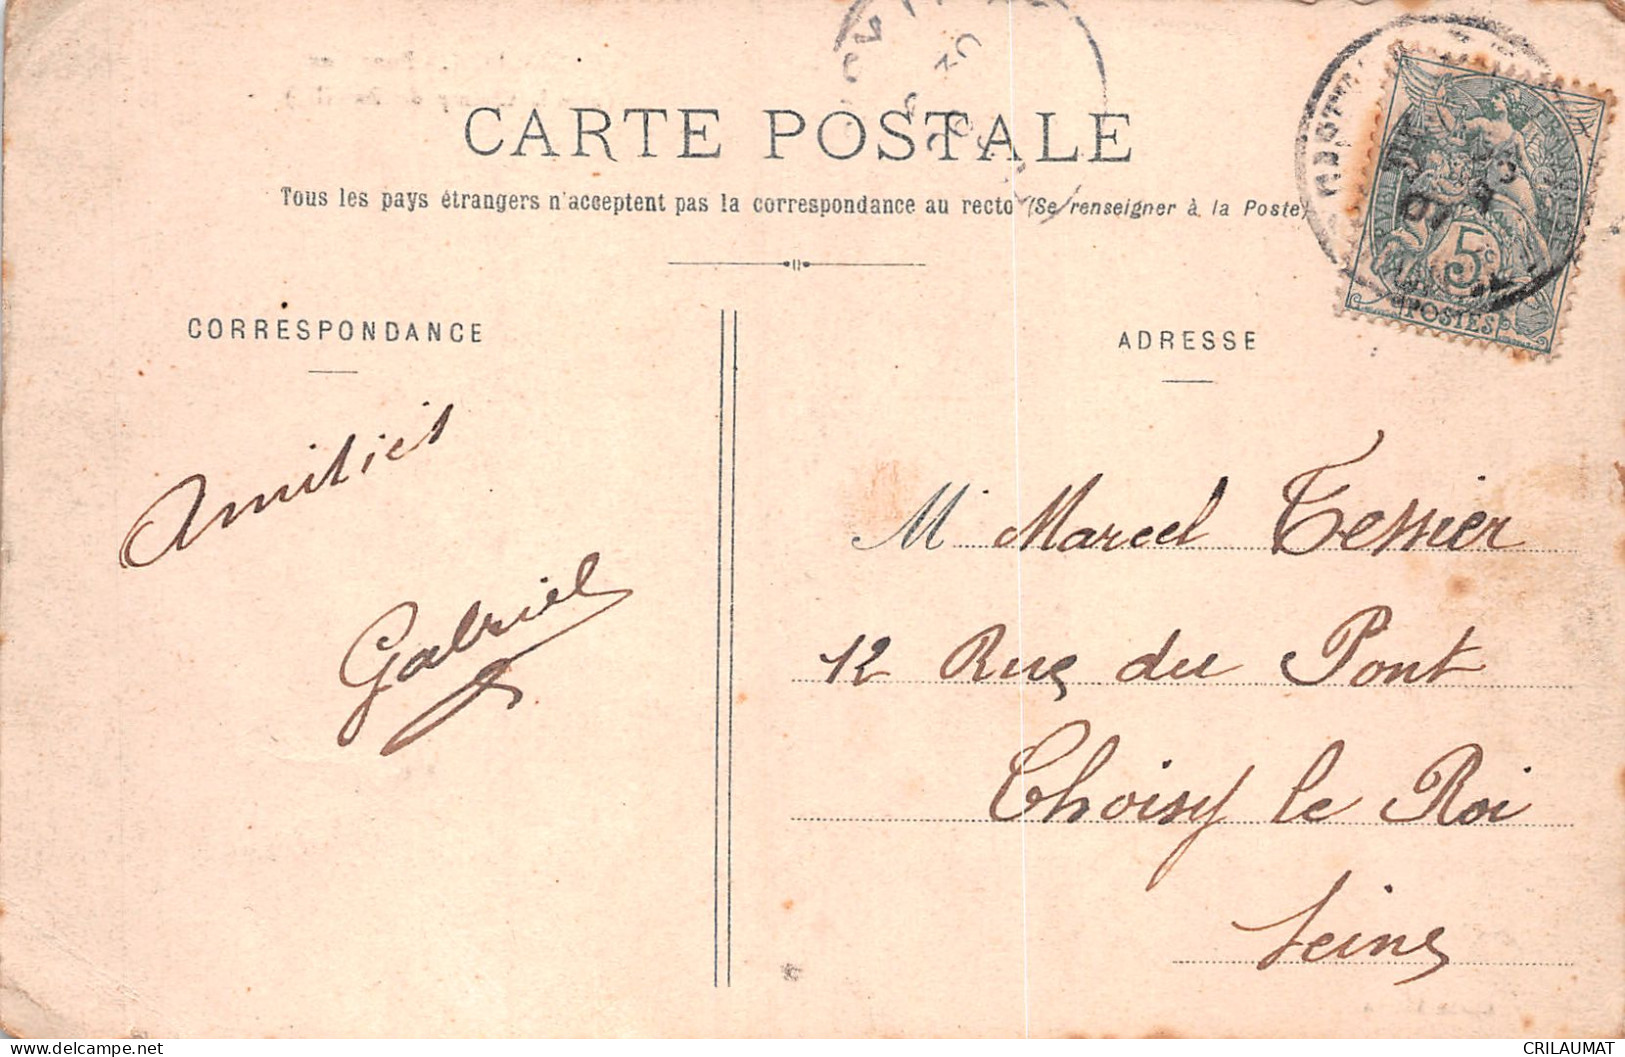 CARTE POSTALE
Tous les pays étrangers n'acceptent pas la correspondance au recto (Se renseigner à la Poste)
CORRESPONDANCE
ADRESSE
5c
POSTES
Amitiés
Gabriel
M. Marcel Tessier
12 Rue du Pont
Choisy le Roi
Seine
CRILAUMAT